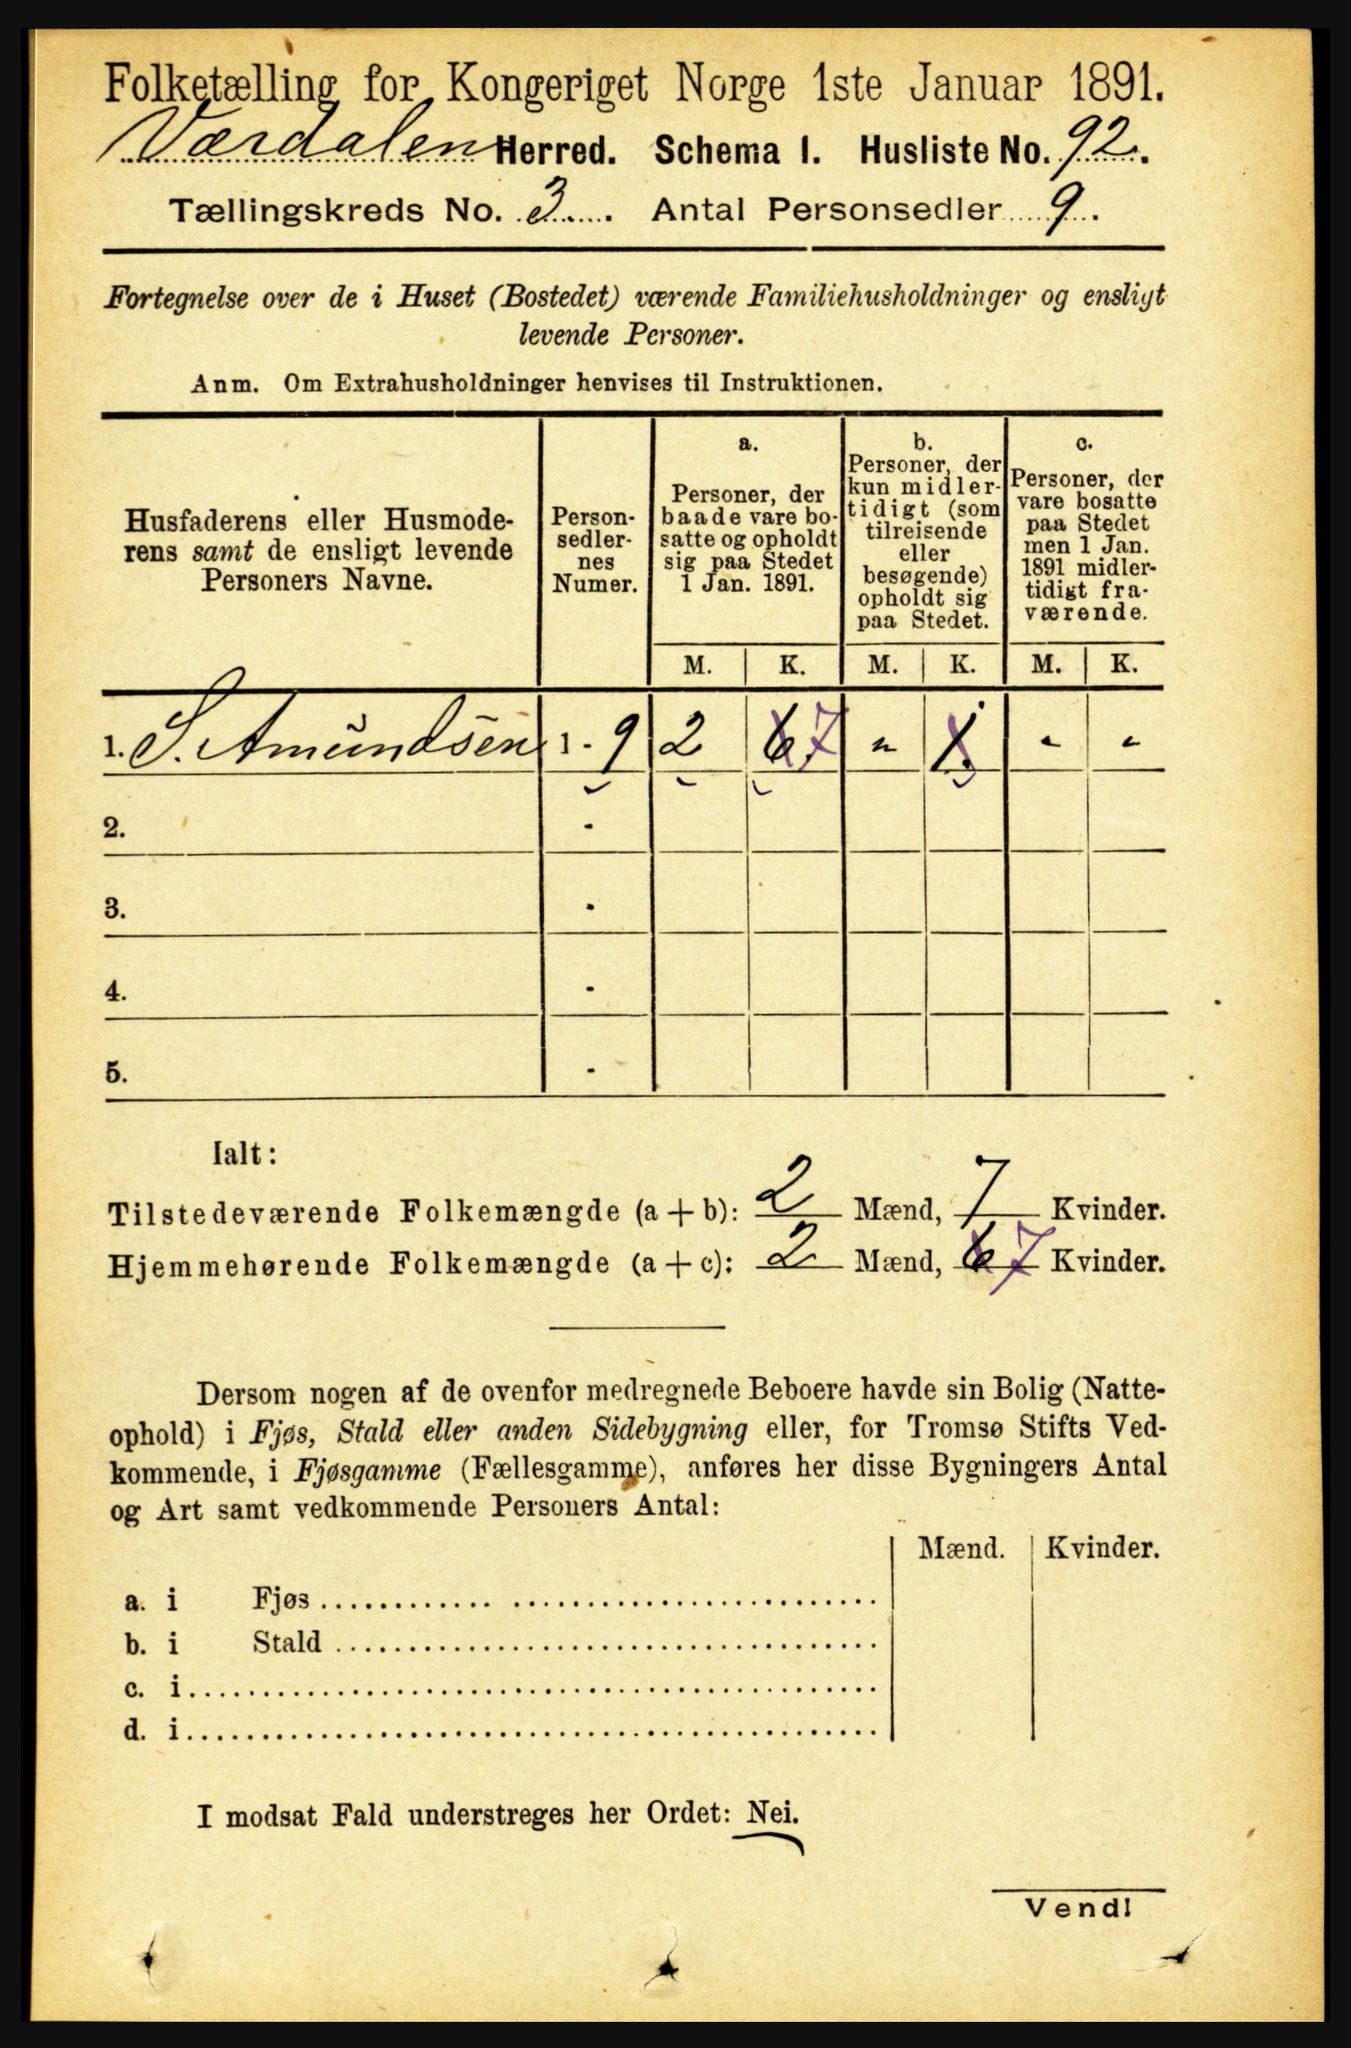 Folketælling for Kongeriget Norge 1ste Januar 1891.
Værdalen Herred. Schema I. Husliste No. 92.
Tællingskreds No. 3. Antal Personsedler 9.
Fortegnelse over de i Huset (Bostedet) værende Familiehusholdninger og ensligt
levende Personer.
Anm. Om Extrahusholdninger henvises til Instruktionen.
Husfaderens eller Husmode-
rens samt de ensligt levende
Personers Navne.
Person-
sedler-
nes
Numer.
a.
Personer, der
baade vare bo-
satte og opholdt
sig paa Stedet
1 Jan. 1891.
b.
Personer, der
kun midler-
tidigt (som
tilreisende
eller
besøgende)
opholdt sig
paa Stedet.
c.
Personer, der
vare bosatte
paa Stedet
men 1 Jan.
1891 midler-
tidigt fra-
værende.
M. K. M. K. M. K.
1. S. Amundsen 1 - 9 2 6 7 " 1 " "
2. -
3. -
4. -
5. -
Ialt:
Tilstedeværende Folkemængde (a + b): 2 Mænd, 7 Kvinder.
Hjemmehørende Folkemængde (a + c): 2 Mænd, 6 7 Kvinder.
Dersom nogen af de ovenfor medregnede Beboere havde sin Bolig (Natte-
ophold) i Fjøs, Stald eller anden Sidebygning eller, for Tromsø Stifts Ved-
kommende, i Fjøsgamme (Fællesgamme), anføres her disse Bygningers Antal
og Art samt vedkommende Personers Antal:
Mænd. Kvinder.
a. i Fjøs
b. i Stald
c. i
d. i
I modsat Fald understreges her Ordet: Nei.
Vend!